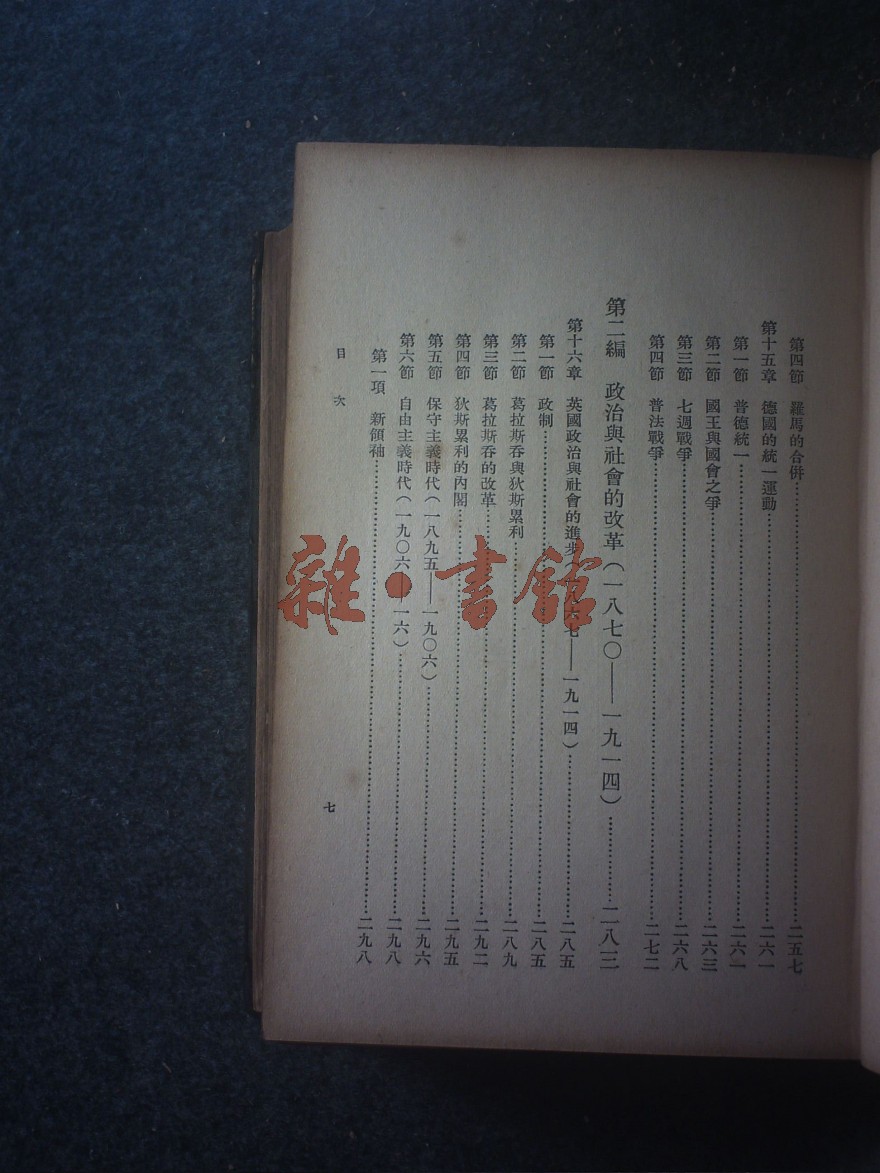 第四節 羅馬的合併……二五七
第十五章 德國的統一運動……二六一
第一節 普德統一……二六一
第二節 國王與國會之爭……二六三
第三節 七週戰爭……二六八
第四節 普法戰爭……二七二
第二編 政治與社會的改革(一八七〇——一九一四)……二八三
第十六章 英國政治與社會的進步(一八六七——一九一四)……二八五
第一節 政制……二八五
第二節 葛拉斯吞與狄斯累利……二八九
第三節 葛拉斯吞的改革……二九二
第四節 狄斯累利的內閣……二九五
第五節 保守主義時代(一八九五——一九〇六)……二九六
第六節 自由主義時代(一九〇六——一六)……二九八
第一項 新領袖……二九八
目次
七
雜·書館